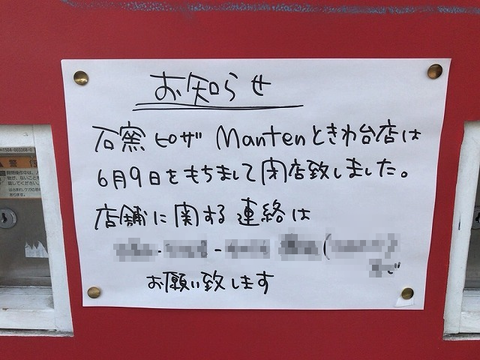 お知らせ
石窯ピザ Mantenときわ台店は
6月9日をもちまして閉店致しました。
店舗に関する連絡は
お願い致します